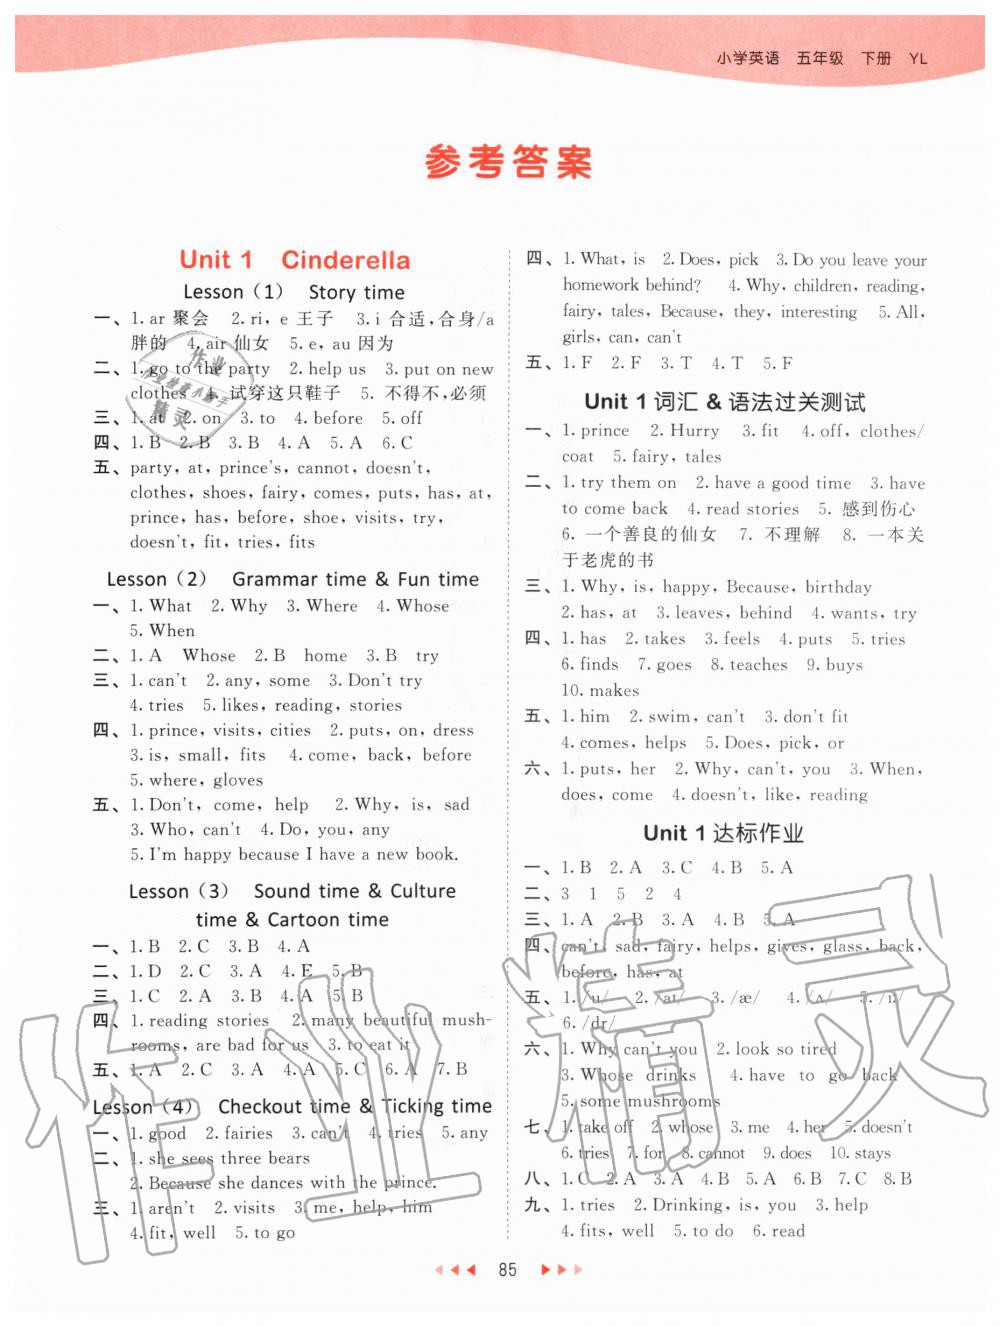 小学英语 五年级 下册 YL
参考答案
Unit 1 Cinderella
Lesson（1） Story time
一、1. ar 聚会 2. ri, e 王子 3. i 合适,合身/a
胖的 4. air 仙女 5. e, au 因为
二、1. go to the party 2. help us 3. put on new
clothes 4. 试穿这只鞋子 5. 不得不,必须
三、1. at 2. on 3. to 4. before 5. off
四、1. B 2. B 3. B 4. A 5. A 6. C
五、party, at, prince's, cannot, doesn't,
clothes, shoes, fairy, comes, puts, has, at,
prince, has, before, shoe, visits, try,
doesn't, fit, tries, fits
Lesson（2） Grammar time & Fun time
一、1. What 2. Why 3. Where 4. Whose
5. When
二、1. A Whose 2. B home 3. B try
三、1. can't 2. any, some 3. Don't try
4. tries 5. likes, reading, stories
四、1. prince, visits, cities 2. puts, on, dress
3. is, small, fits 4. come, back, before
5. where, gloves
五、1. Don't, come, help 2. Why, is, sad
3. Who, can't 4. Do, you, any
5. I'm happy because I have a new book.
Lesson（3） Sound time & Culture
time & Cartoon time
一、1. B 2. C 3. B 4. A
二、1. D 2. C 3. A 4. E 5. B
三、1. C 2. A 3. B 4. A 5. B
四、1. reading stories 2. many beautiful mush-
rooms, are bad for us 3. to eat it
五、1. A 2. C 3. A 4. A 5. C 6. A 7. B
Lesson（4） Checkout time & Ticking time
一、1. good 2. fairies 3. can't 4. tries 5. any
二、1. she sees three bears
2. Because she dances with the prince.
三、1. aren't 2. visits 3. me, help, him
4. fit, well 5. to go
四、1. What, is 2. Does, pick 3. Do you leave your
homework behind? 4. Why, children, reading,
fairy, tales, Because, they, interesting 5. All,
girls, can, can't
五、1. F 2. F 3. T 4. T 5. F
Unit 1 词汇 & 语法过关测试
一、1. prince 2. Hurry 3. fit 4. off, clothes/
coat 5. fairy, tales
二、1. try them on 2. have a good time 3. have
to come back 4. read stories 5. 感到伤心
6. 一个善良的仙女 7. 不理解 8. 一本关
于老虎的书
三、1. Why, is, happy, Because, birthday
2. has, at 3. leaves, behind 4. wants, try
四、1. has 2. takes 3. feels 4. puts 5. tries
6. finds 7. goes 8. teaches 9. buys
10. makes
五、1. him 2. swim, can't 3. don't fit
4. comes, helps 5. Does, pick, or
六、1. puts, her 2. Why, can't, you 3. When,
does, come 4. doesn't, like, reading
Unit 1 达标作业
一、1. B 2. A 3. C 4. B 5. A
二、3 1 5 2 4
三、1. A 2. B 3. A 4. B 5. A
四、can't, sad, fairy, helps, gives, glass, back,
before, has, at
五、1. /u/ 2. /aɪ/ 3. /æ/ 4. /ʌ/ 5. /ɪ/
6. /dr/
六、1. Why can't you 2. look so tired
3. Whose drinks 4. have to go back
5. some mushrooms
七、1. take off 2. whose 3. me 4. her 5. doesn't
6. tries 7. for 8. cannot 9. does 10. stays
八、1. C 2. A 3. A 4. B 5. A 6. B 7. C 8. B
九、1. tries 2. Drinking, is, you 3. help
4. fits, well 5. to do 6. read
85
作业精灵